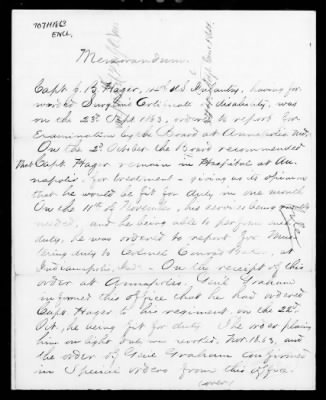 707H1863
ENCL.
Memorandum.
Capt. J. B. Hager, 14th U.S. Infantry, having for-
warded Surgeons Certificate of disability, was
on the 23d Sept 1863, ordered to report for
Examination by the Board at Annapolis Md.
On the 2d October the Board recommended
that Capt. Hager remain in Hospital at An-
napolis for treatment - giving as its opinion
that he would be fit for duty in one month
On the 11th of November, his services being
needed, and he being able to perform
duty, he was ordered to report for Mus-
tering duty to Colonel Conrad Baker, at
Indianapolis, Ind. - On the receipt of this
order at Annapolis, Genl Graham
informed this office that he had ordered
Capt. Hager to his regiment, on the 22d
Oct., he being fit for duty. The order placing
him on light duty was revoked, Nov. 1863, and
the order of Genl Graham confirmed
in Special orders from this office.
(over)